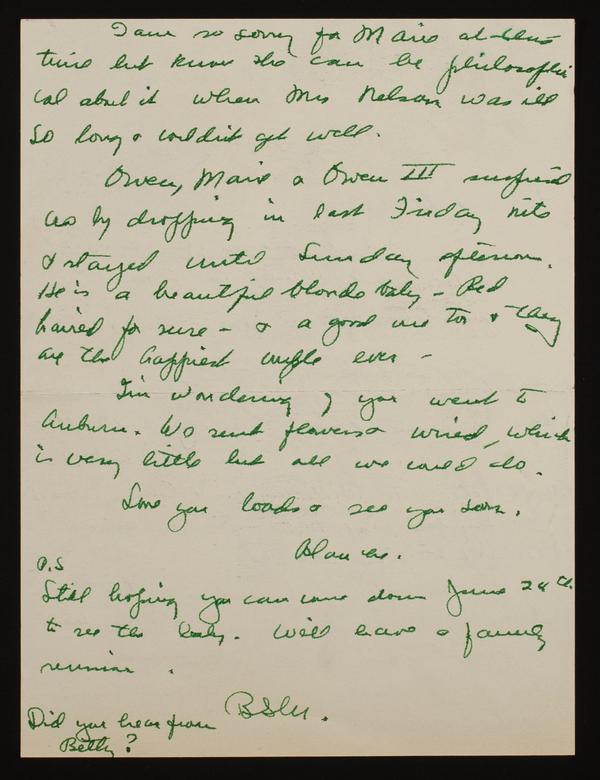 I am so sorry for Marie at this
time but know she can be philosophi
cal about it when Mrs Nelson was ill
so long & couldn't get well.
Owen, Marie & Owen III surprised
us by dropping in last Friday nite
& stayed until Sunday afternoon.
He is a beautiful blonde baby - Red
haired for sure - & a good one too & they
are the happiest couple ever -
I'm wondering if you went to
Auburn. We sent flowers & wired, which
is very little but all we could do.
Love you loads & see you soon.
Blanche.
P.S
Still hoping you can come down June 28th
to see the baby. Will have a family
reunion.
Did you hear from
Betty?